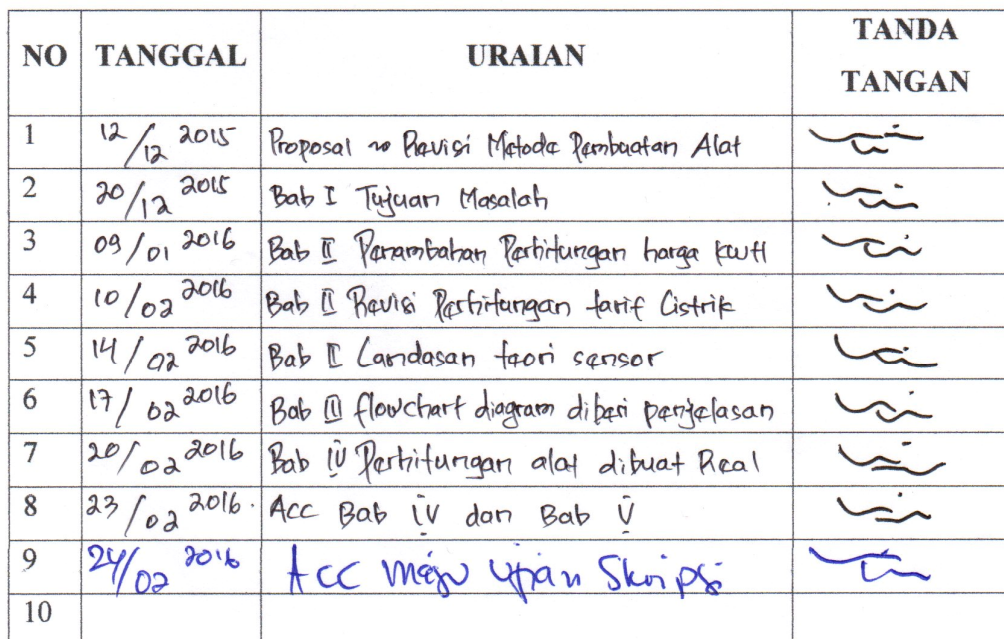 NO TANGGAL URAIAN TANDA TANGAN
1 12/12 2015 Proposal ~> Revisi Metode Pembuatan Alat
2 20/12 2015 Bab I Tujuan Masalah
3 09/01 2016 Bab II Penambahan Perhitungan harga kWH
4 10/02 2016 Bab II Revisi Perhitungan tarif Listrik
5 14/02 2016 Bab II Landasan teori sensor
6 17/02 2016 Bab III flowchart diagram diberi penjelasan
7 20/02 2016 Bab IV Perhitungan alat dibuat Real
8 23/02 2016. Acc Bab IV dan Bab V
9 24/02 2016 Acc maju ujian Skripsi
10